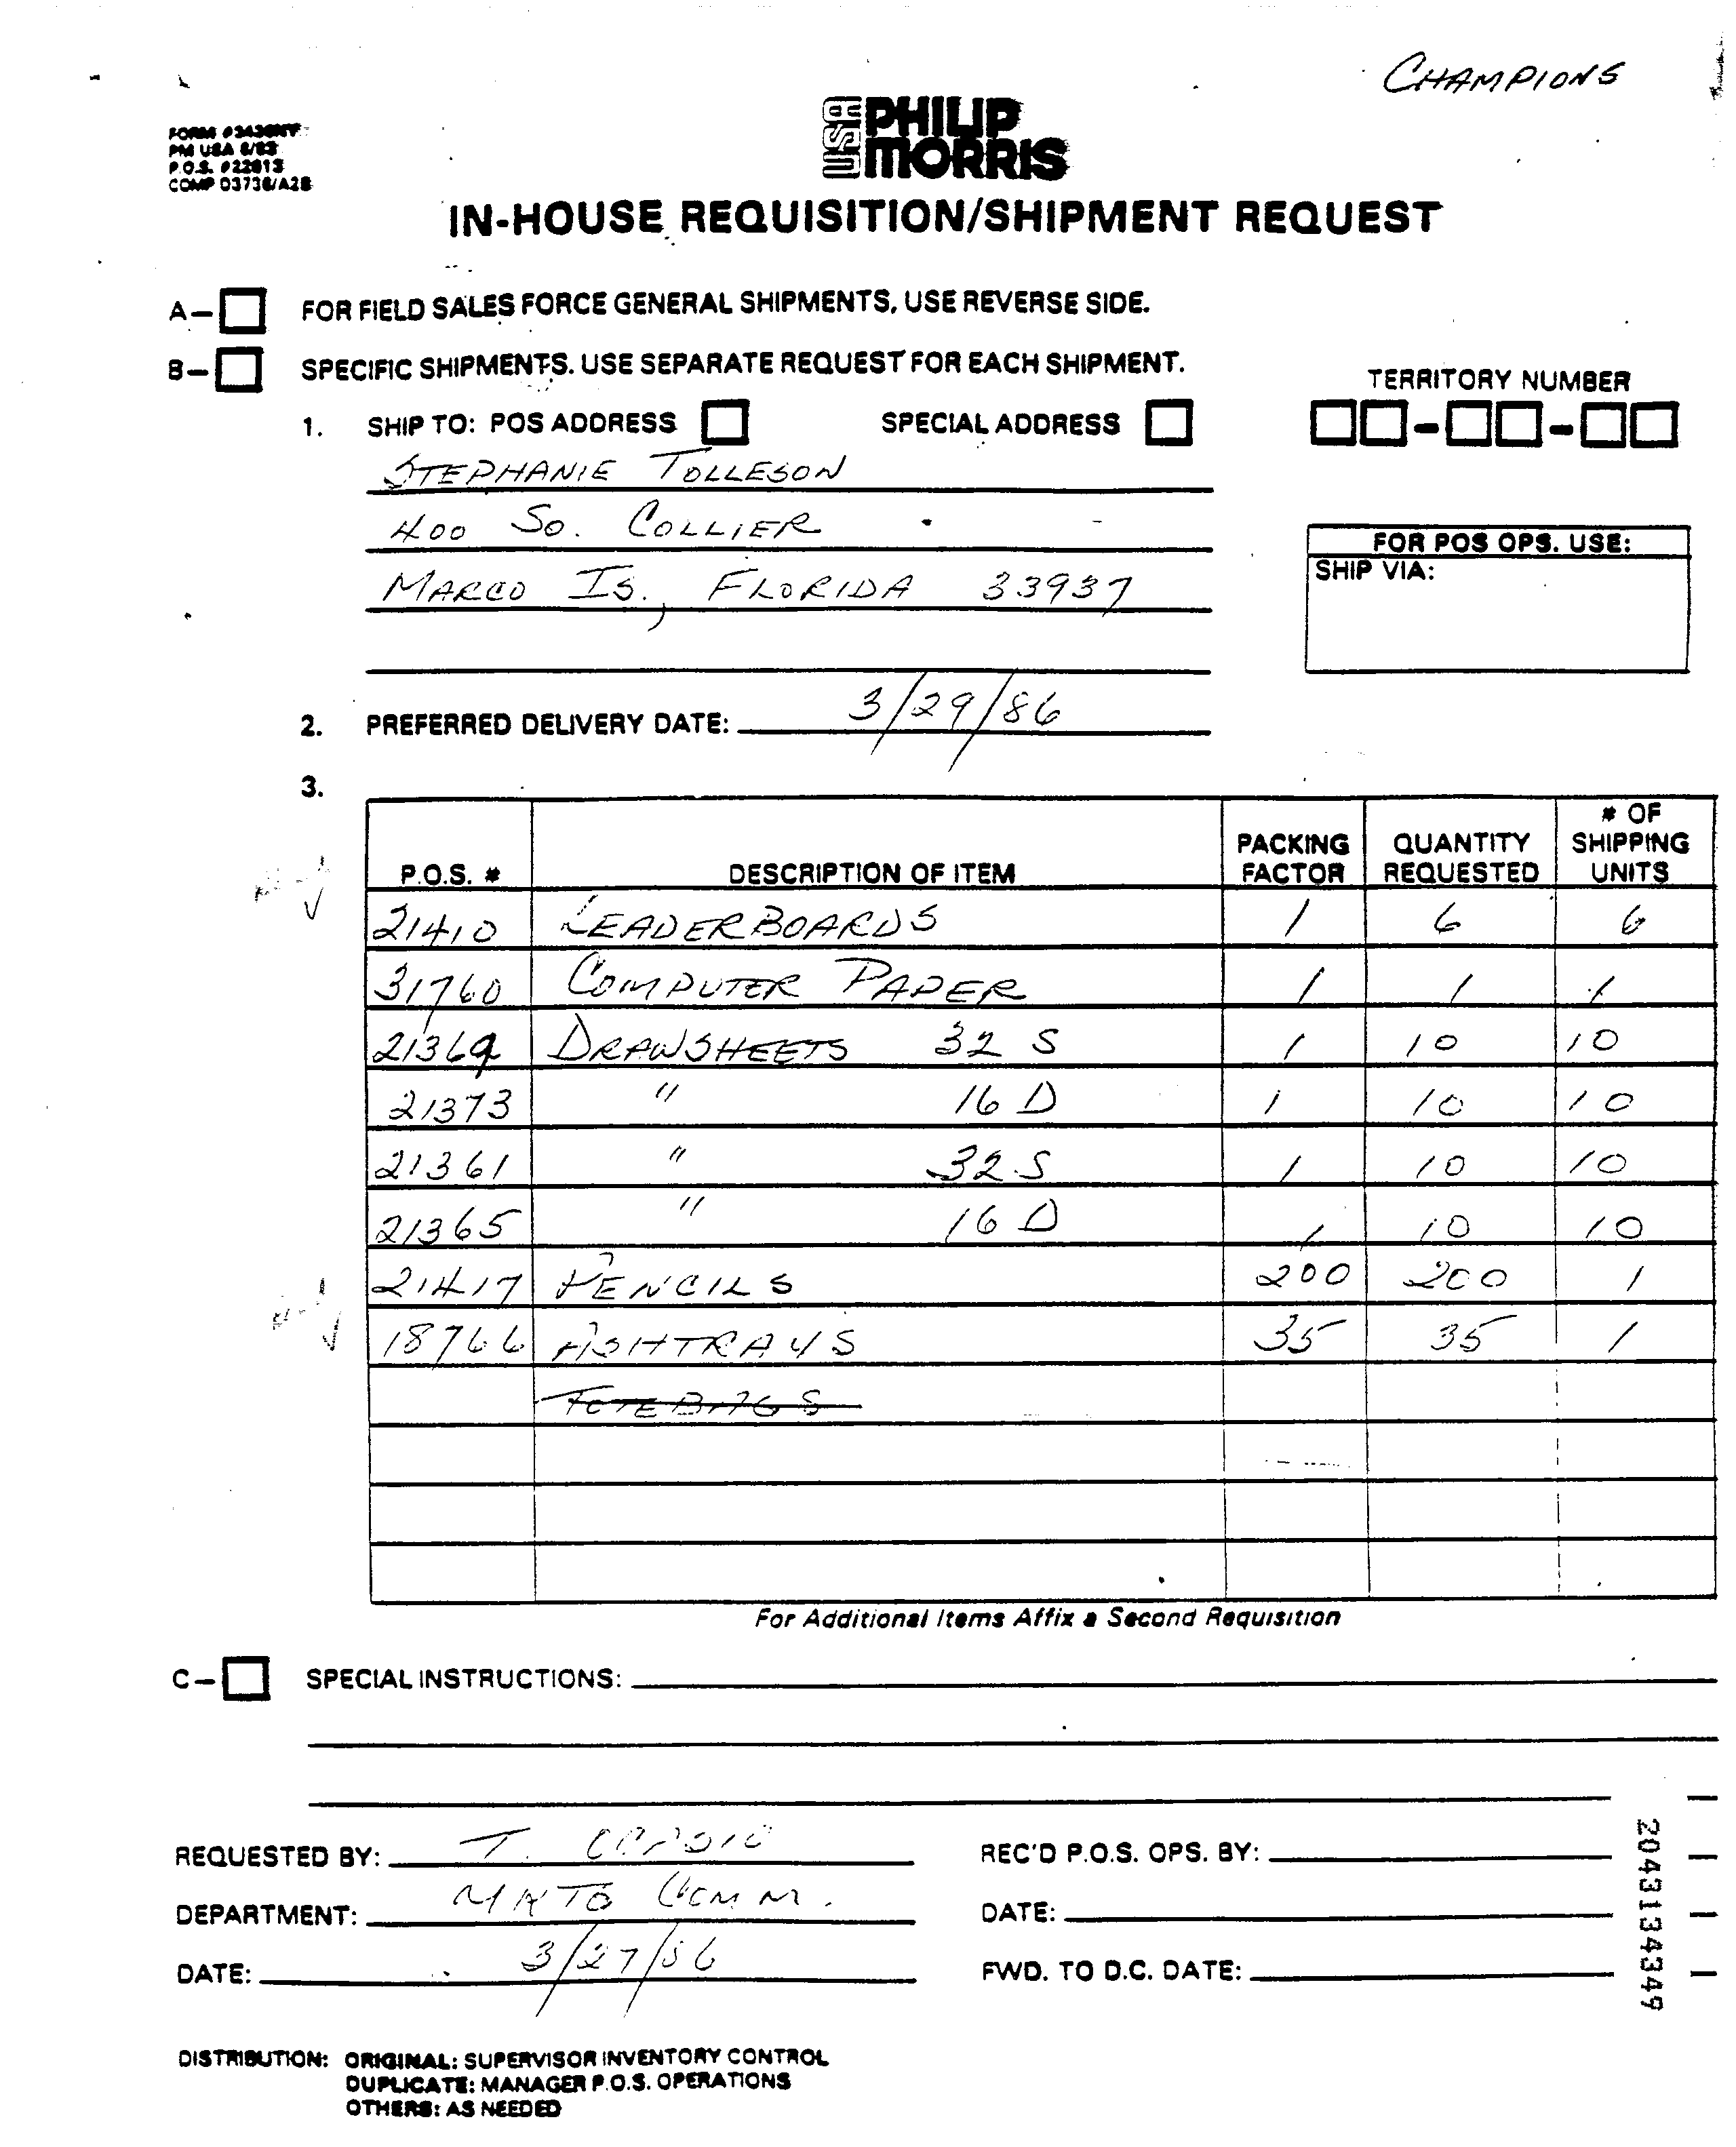 CHAMPIONS
FORM #3436NY
PM USA 6/83
P.O.S. #22813
COMP 03736/A28
USA PHILIP MORRIS
IN-HOUSE REQUISITION/SHIPMENT REQUEST
A- FOR FIELD SALES FORCE GENERAL SHIPMENTS, USE REVERSE SIDE.
B- SPECIFIC SHIPMENTS. USE SEPARATE REQUEST FOR EACH SHIPMENT.
TERRITORY NUMBER
1. SHIP TO: POS ADDRESS SPECIAL ADDRESS
STEPHANIE TOLLESON
400 SO. COLLIER
MARCO IS., FLORIDA 33937
FOR POS OPS. USE:
SHIP VIA:
2. PREFERRED DELIVERY DATE: 3/29/86
3.
P.O.S. # DESCRIPTION OF ITEM PACKING FACTOR QUANTITY REQUESTED # OF SHIPPING UNITS
21410 LEADERBOARDS 1 6 6
31760 COMPUTER PAPER 1 1 1
21369 DRAWSHEETS 32 S 1 10 10
21373 " 16 D 1 10 10
21361 " 32 S 1 10 10
21365 " 16 D 1 10 10
21417 PENCILS 200 200 1
18766 ASHTRAYS 35 35 1
TOTE BAGS
For Additional Items Affix a Second Requisition
C- SPECIAL INSTRUCTIONS:
REQUESTED BY: T.
DEPARTMENT: MKTG COMM.
DATE: 3/27/86
REC'D P.O.S. OPS. BY:
DATE:
FWD. TO D.C. DATE:
2043134349
DISTRIBUTION: ORIGINAL: SUPERVISOR INVENTORY CONTROL
DUPLICATE: MANAGER P.O.S. OPERATIONS
OTHERS: AS NEEDED